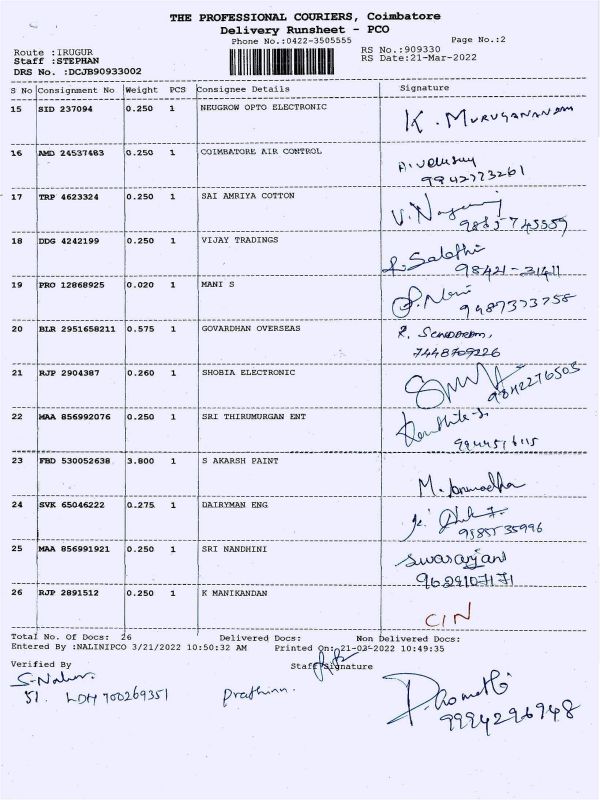 THE PROFESSIONAL COURIERS, Coimbatore
Delivery Runsheet - PCO
Phone No.:0422-3505555
Page No.:2
Route :IRUGUR
Staff :STEPHAN
DRS No. :DCJB90933002
RS No.:909330
RS Date:21-Mar-2022
S No Consignment No Weight PCS Consignee Details Signature
15 SID 237094 0.250 1 NEUGROW OPTO ELECTRONIC K. MURUGANANDAM
16 AMD 24537483 0.250 1 COIMBATORE AIR CONTROL
9942773261
17 TRP 4623324 0.250 1 SAI AMRIYA COTTON
9865745559
18 DDG 4242199 0.250 1 VIJAY TRADINGS
98421-31411
19 PRO 12868925 0.020 1 MANI S
9487373758
20 BLR 2951658211 0.575 1 GOVARDHAN OVERSEAS
7448709226
21 RJP 2904387 0.260 1 SHOBIA ELECTRONIC
9842276505
22 MAA 856992076 0.250 1 SRI THIRUMURGAN ENT
23 FBD 530052638 3.800 1 S AKARSH PAINT M. Anuradha
24 SVK 65046222 0.275 1 DAIRYMAN ENG
9585735996
25 MAA 856991921 0.250 1 SRI NANDHINI
9629107171
26 RJP 2891512 0.250 1 K MANIKANDAN CIN
Total No. Of Docs: 26 Delivered Docs: Non Delivered Docs:
Entered By :NALINIPCO 3/21/2022 10:50:32 AM Printed On:21-03-2022 10:49:35
Verified By Staff Signature
51. LDH 700269351
9994296948